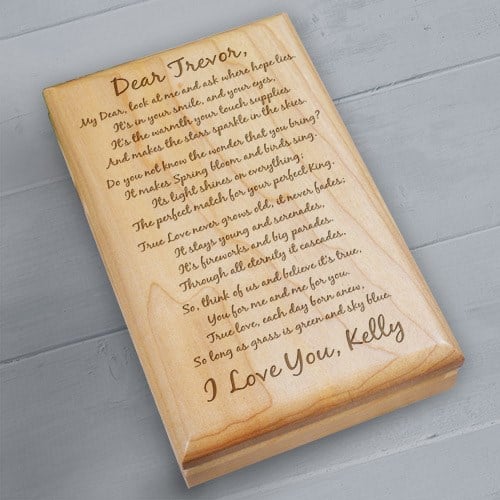 Dear Trevor,
My Dear, look at me and ask where hope lies.
It's in your smile, and your eyes,
It's the warmth your touch supplies
And makes the stars sparkle in the skies.
Do you not know the wonder that you bring?
It makes Spring bloom and birds sing.
Its light shines on everything;
The perfect match for your perfect King.
True Love never grows old, it never fades;
It stays young and serenades.
It's fireworks and big parades.
Through all eternity it cascades.
So, think of us and believe it's true.
You for me and me for you.
True love, each day born anew,
So long as grass is green and sky blue.
I Love You, Kelly